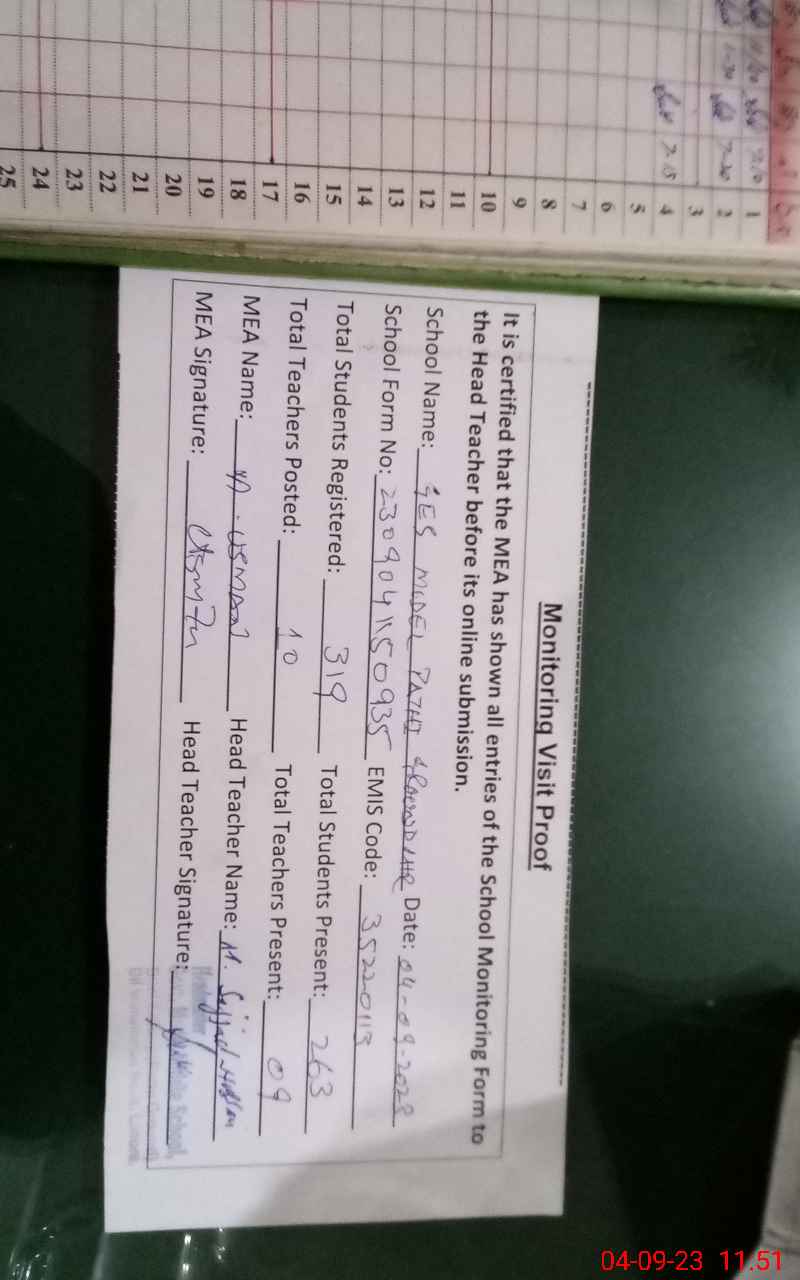 Monitoring Visit Proof
It is certified that the MEA has shown all entries of the School Monitoring Form to
the Head Teacher before its online submission.
School Name: GES MODEL PATHI GROUND LHR Date: 04-09-2023
School Form No: 230904150935 EMIS Code: 35220113
Total Students Registered: 319 Total Students Present: 263
Total Teachers Posted: 10 Total Teachers Present: 09
MEA Name: M. USMAN Head Teacher Name: M. Sajjad
MEA Signature: Head Teacher Signature:
1
2
3
4 7.15
5
6
7
8
9
10
11
12
13
14
15
16
17
18
19
20
21
22
23
24
25
04-09-23 11.51